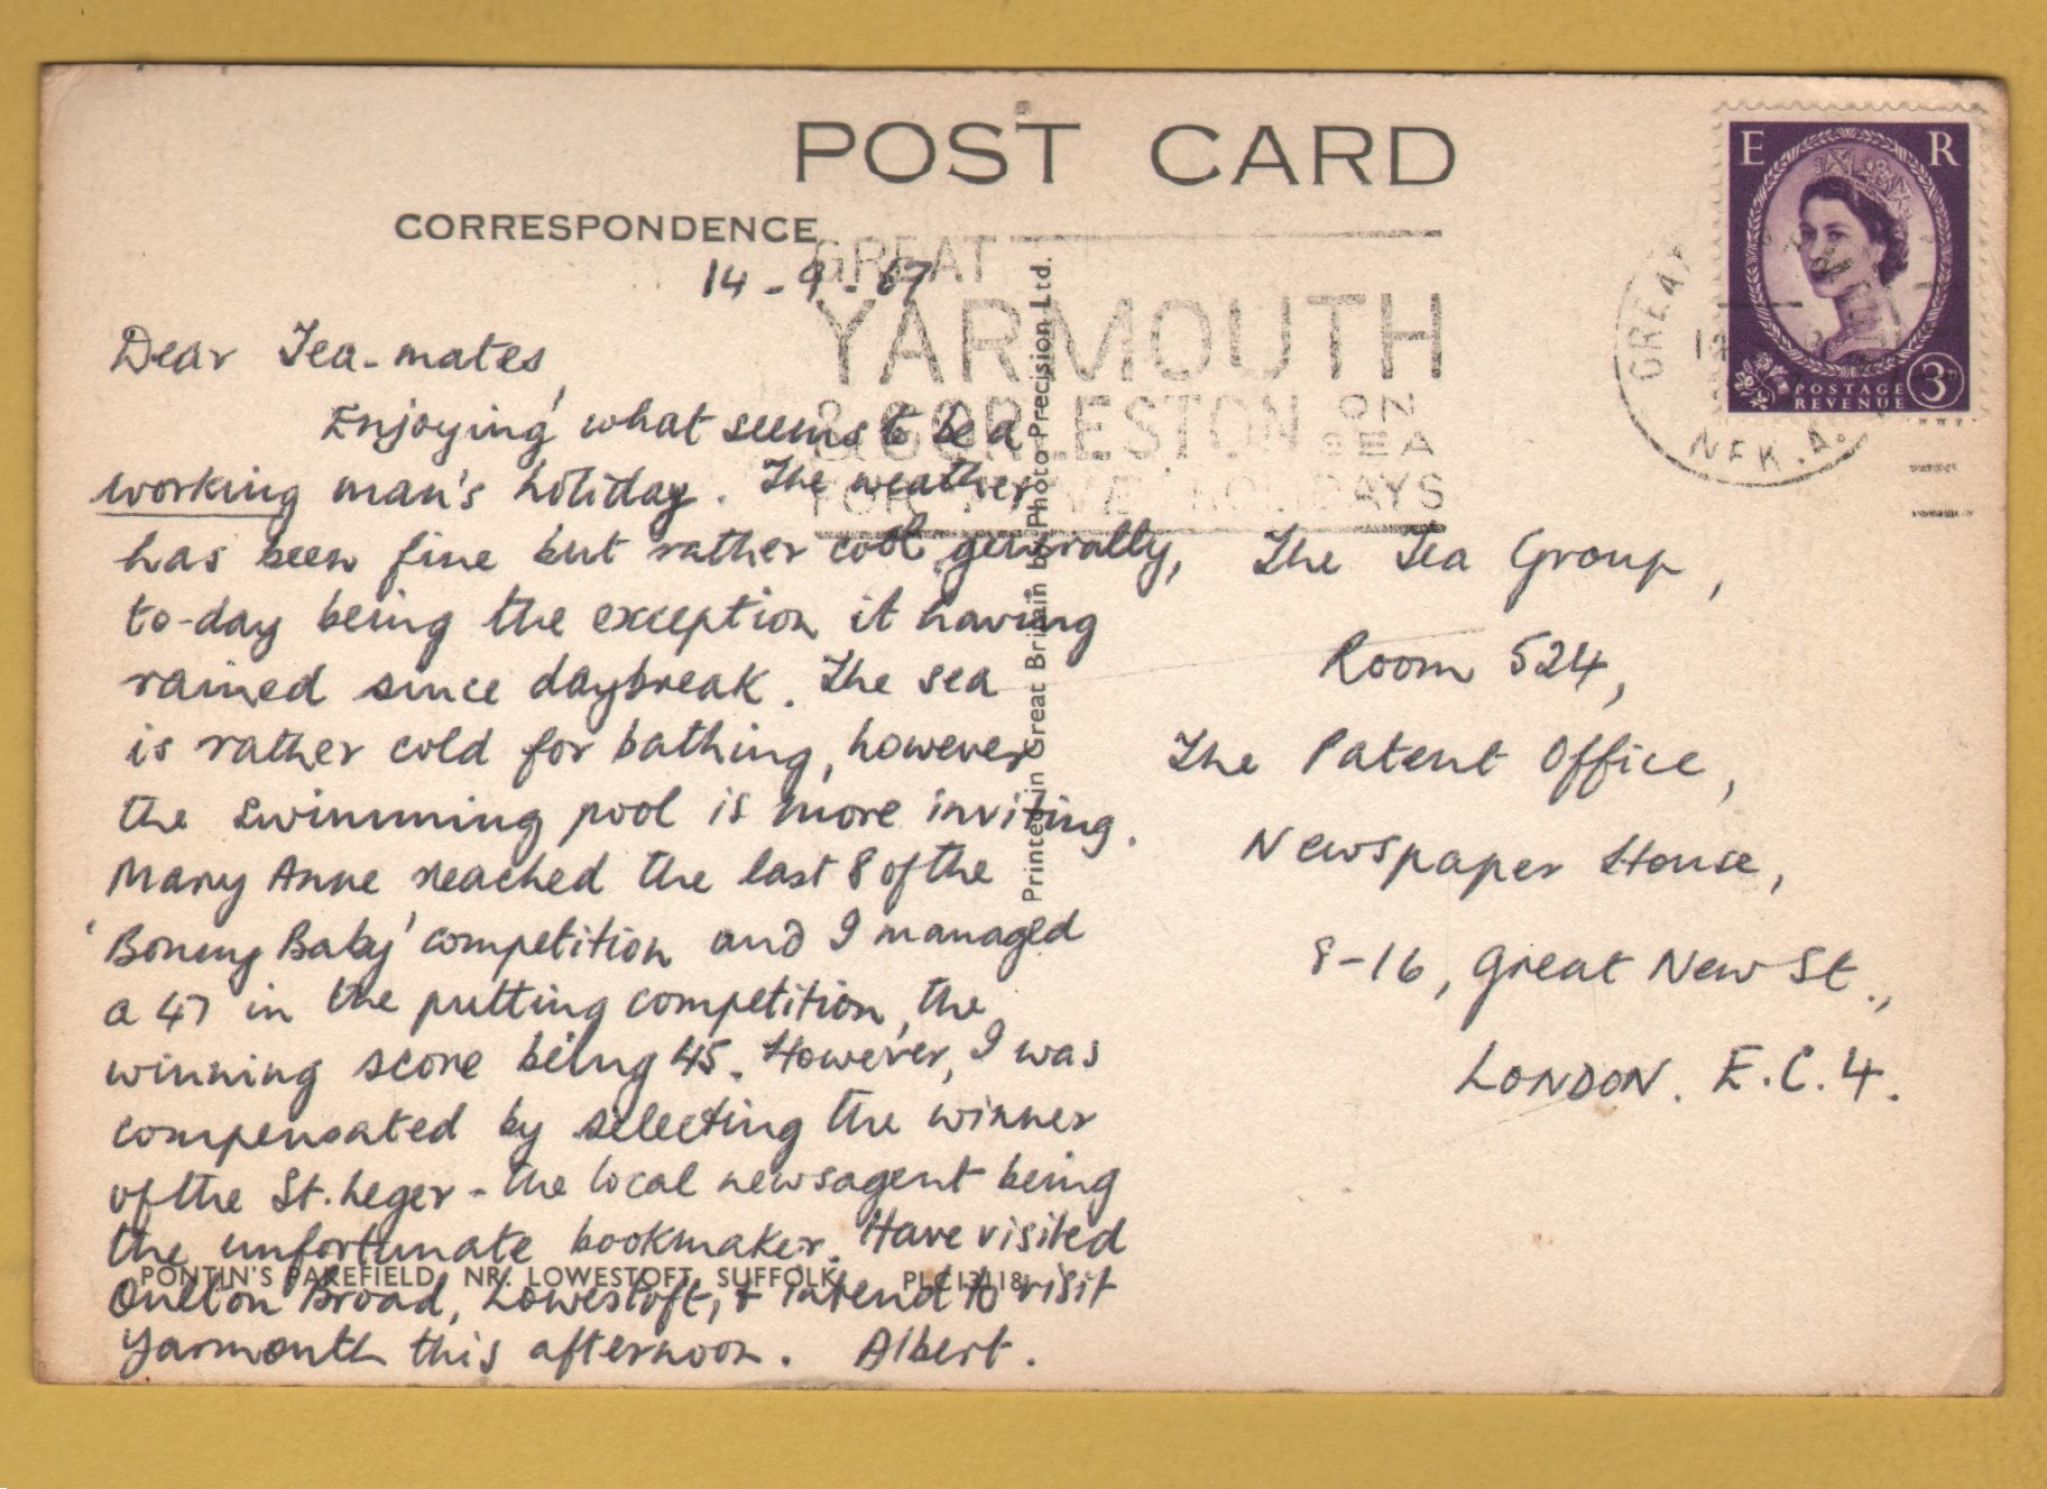 POST CARD
CORRESPONDENCE
14-9-67
Dear Tea-mates,
Enjoying what seems to be a
working man's holiday. The weather
has been fine but rather cool generally,
to-day being the exception it having
rained since daybreak. The sea
is rather cold for bathing, however
the swimming pool is more inviting.
Mary Anne reached the last 8 of the
'Bonny Baby' competition and I managed
a 47 in the putting competition, the
winning score being 45. However, I was
compensated by selecting the winner
of the St. Leger - the local newsagent being
the unfortunate bookmaker. Have visited
Oulton Broad, Lowestoft, & intend to visit
Yarmouth this afternoon. Albert.
PONTIN'S PAKEFIELD, NR. LOWESTOFT, SUFFOLK
Printed in Great Britain by Photo Precision Ltd.
GREAT
YARMOUTH
& GORLESTON ON
SEA
FOR HOLIDAYS
GREAT
NFK.
E R
POSTAGE
REVENUE
3D
The Tea Group,
Room 524,
The Patent Office,
Newspaper House,
8-16, Great New St.,
LONDON. E.C.4.